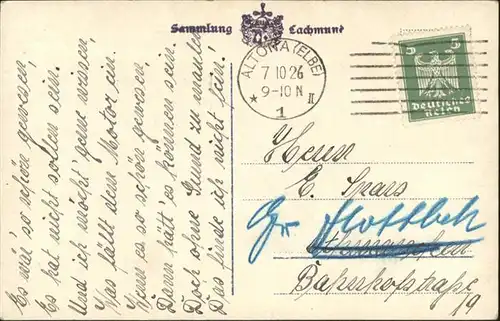 Es wär' so schön gewesen,
Es hat nicht sollen sein.
Und ich möcht' gerne wissen,
Was fällt dem Motor ein.
Wenn es so schön gewesen,
Dann hätt' es können sein.
Doch ohne Grund zu maulen
Das finde ich nicht fein!
Sammlung Lachmund
ALTONA (ELBE)
7 10 26
9-10 N
★ 1 II
5 5
Deutsches
Reich
Herrn
E.
Gr Flottbek
Bahnhofstraße
19